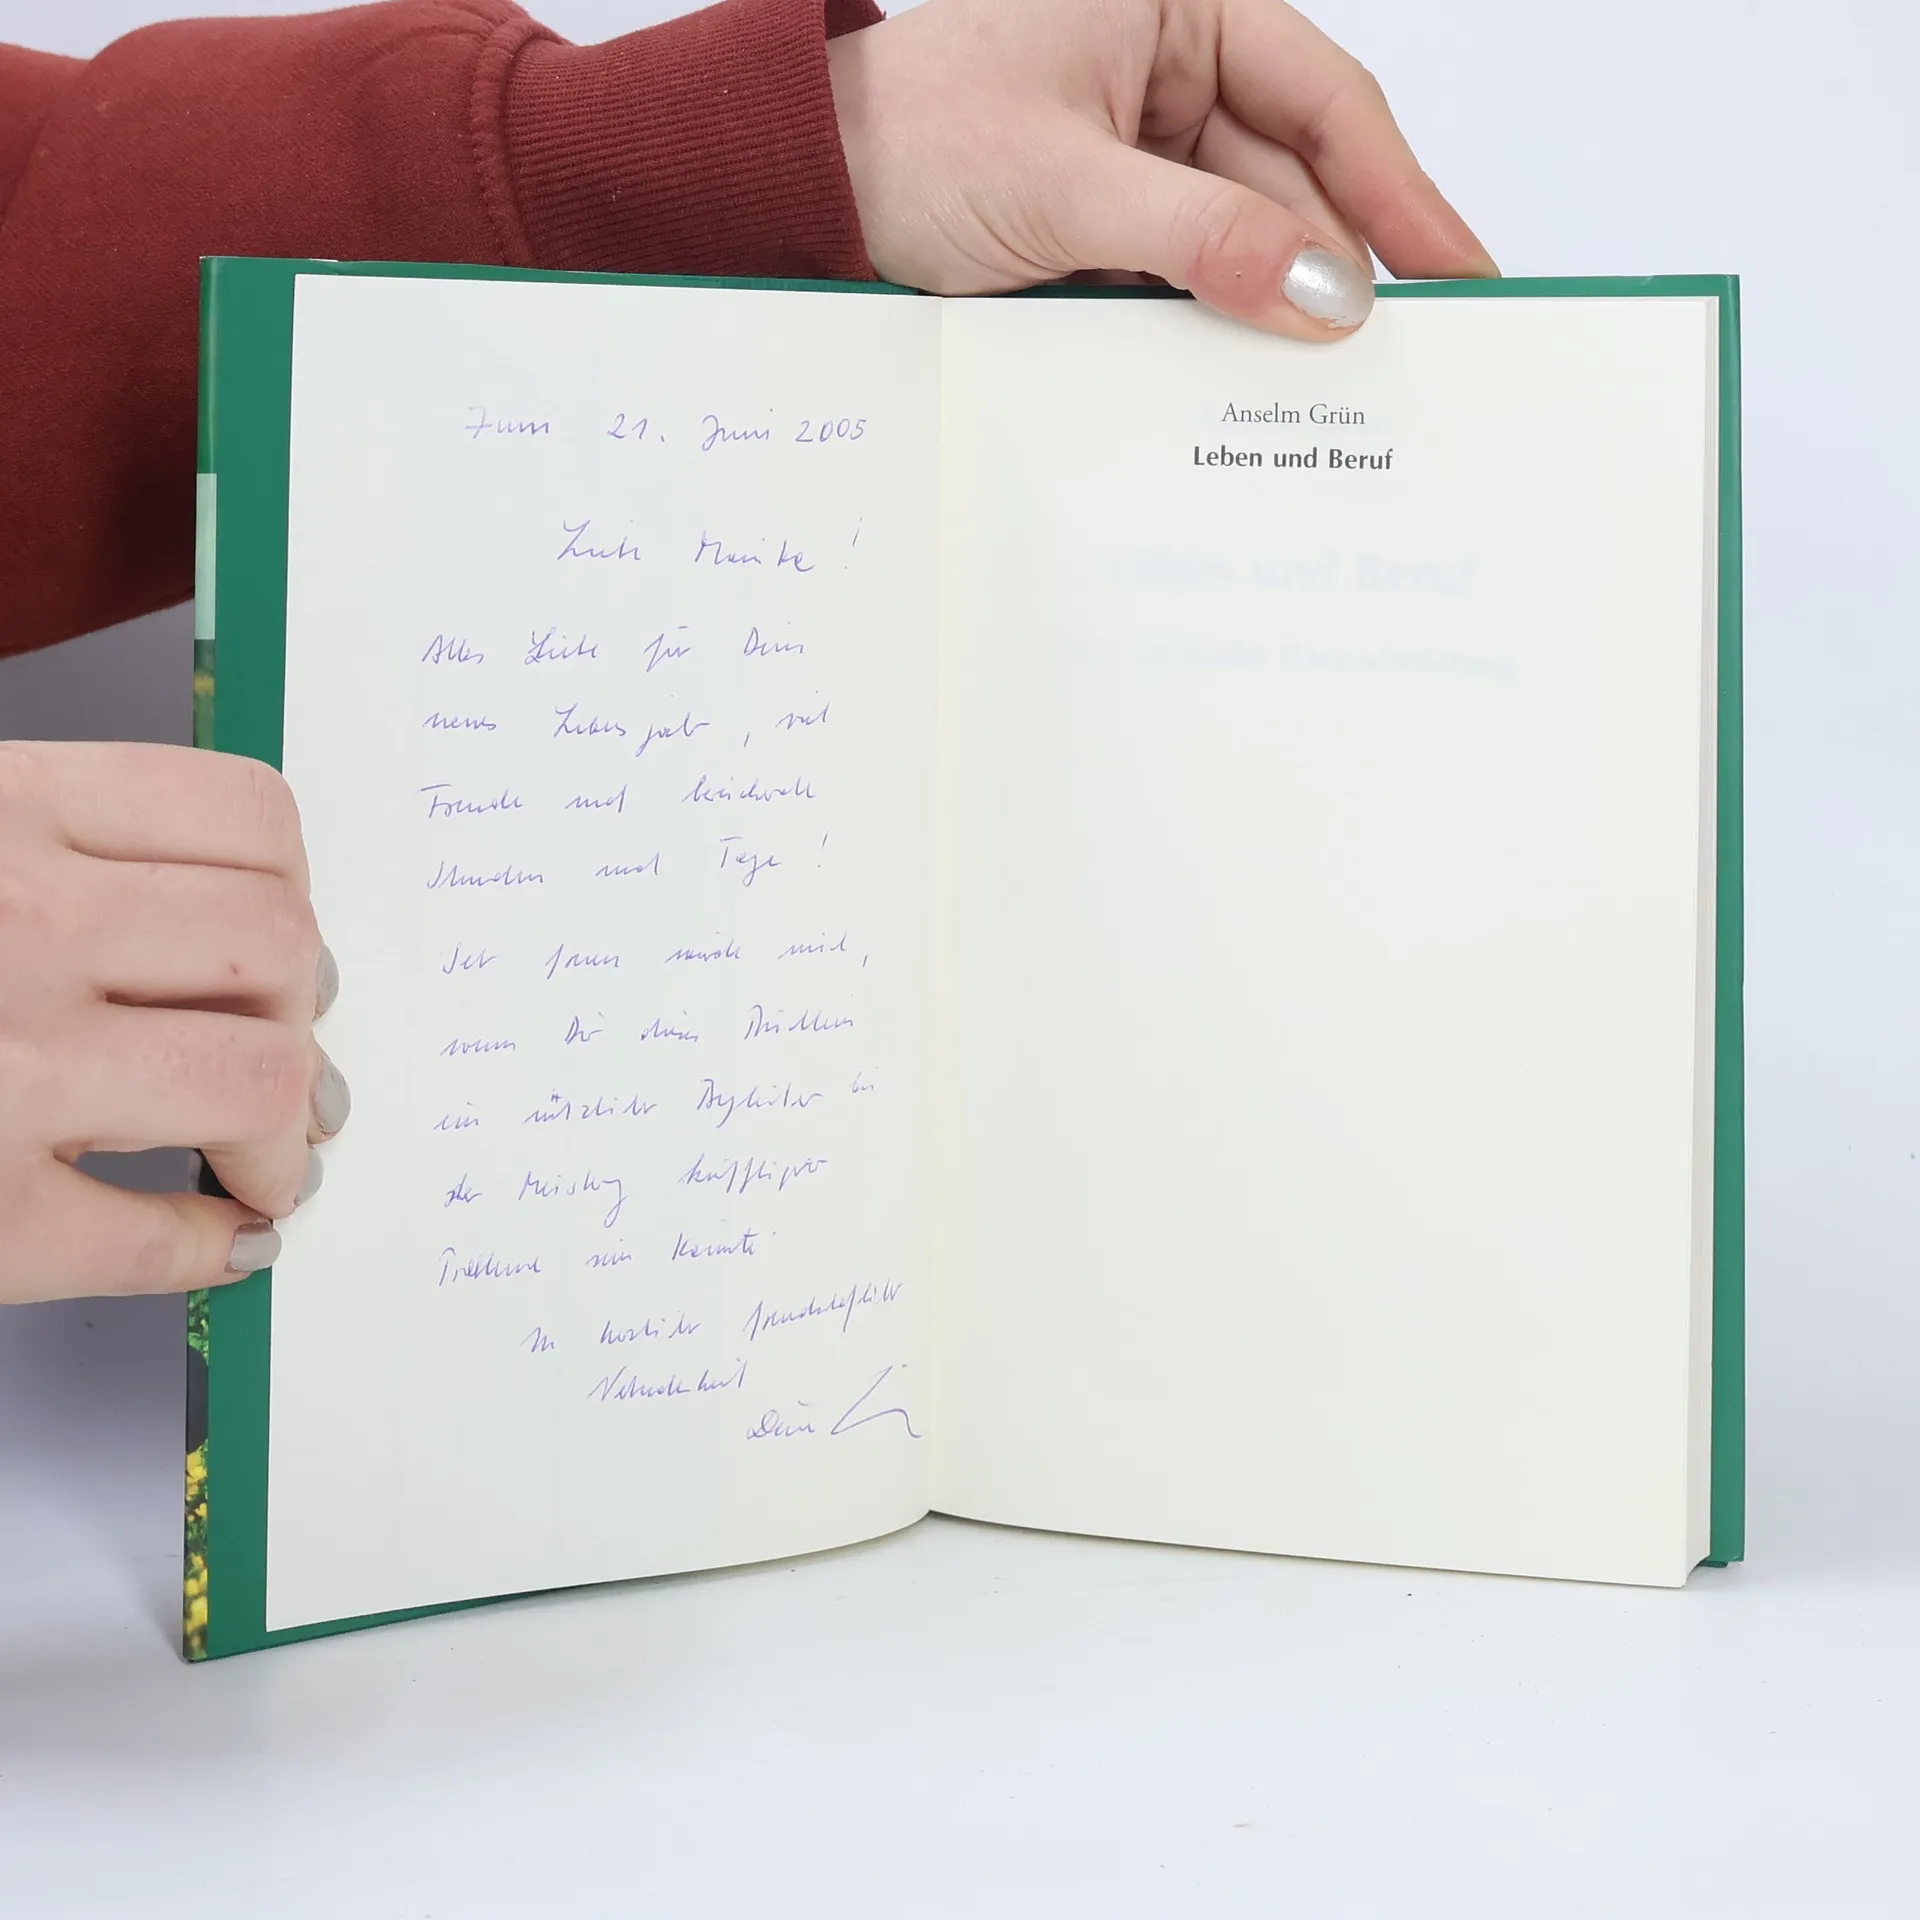 Zum 21. Juni 2005
Liebe
Alles Liebe für Dein
neues Lebensjahr, viel
Freude und lichtvolle
Stunden und Tage!
Ich freuen würde mich,
wenn Dir dieses Büchlein
ein nützlicher Begleiter bei
der Meisterung künftiger
Probleme sein könnte.
In herzlicher freundschaftlicher
Verbundenheit
Dein
Anselm Grün
Leben und Beruf